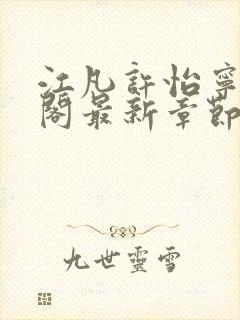 江凡許怡寧
閣最新章節
九世靈雪